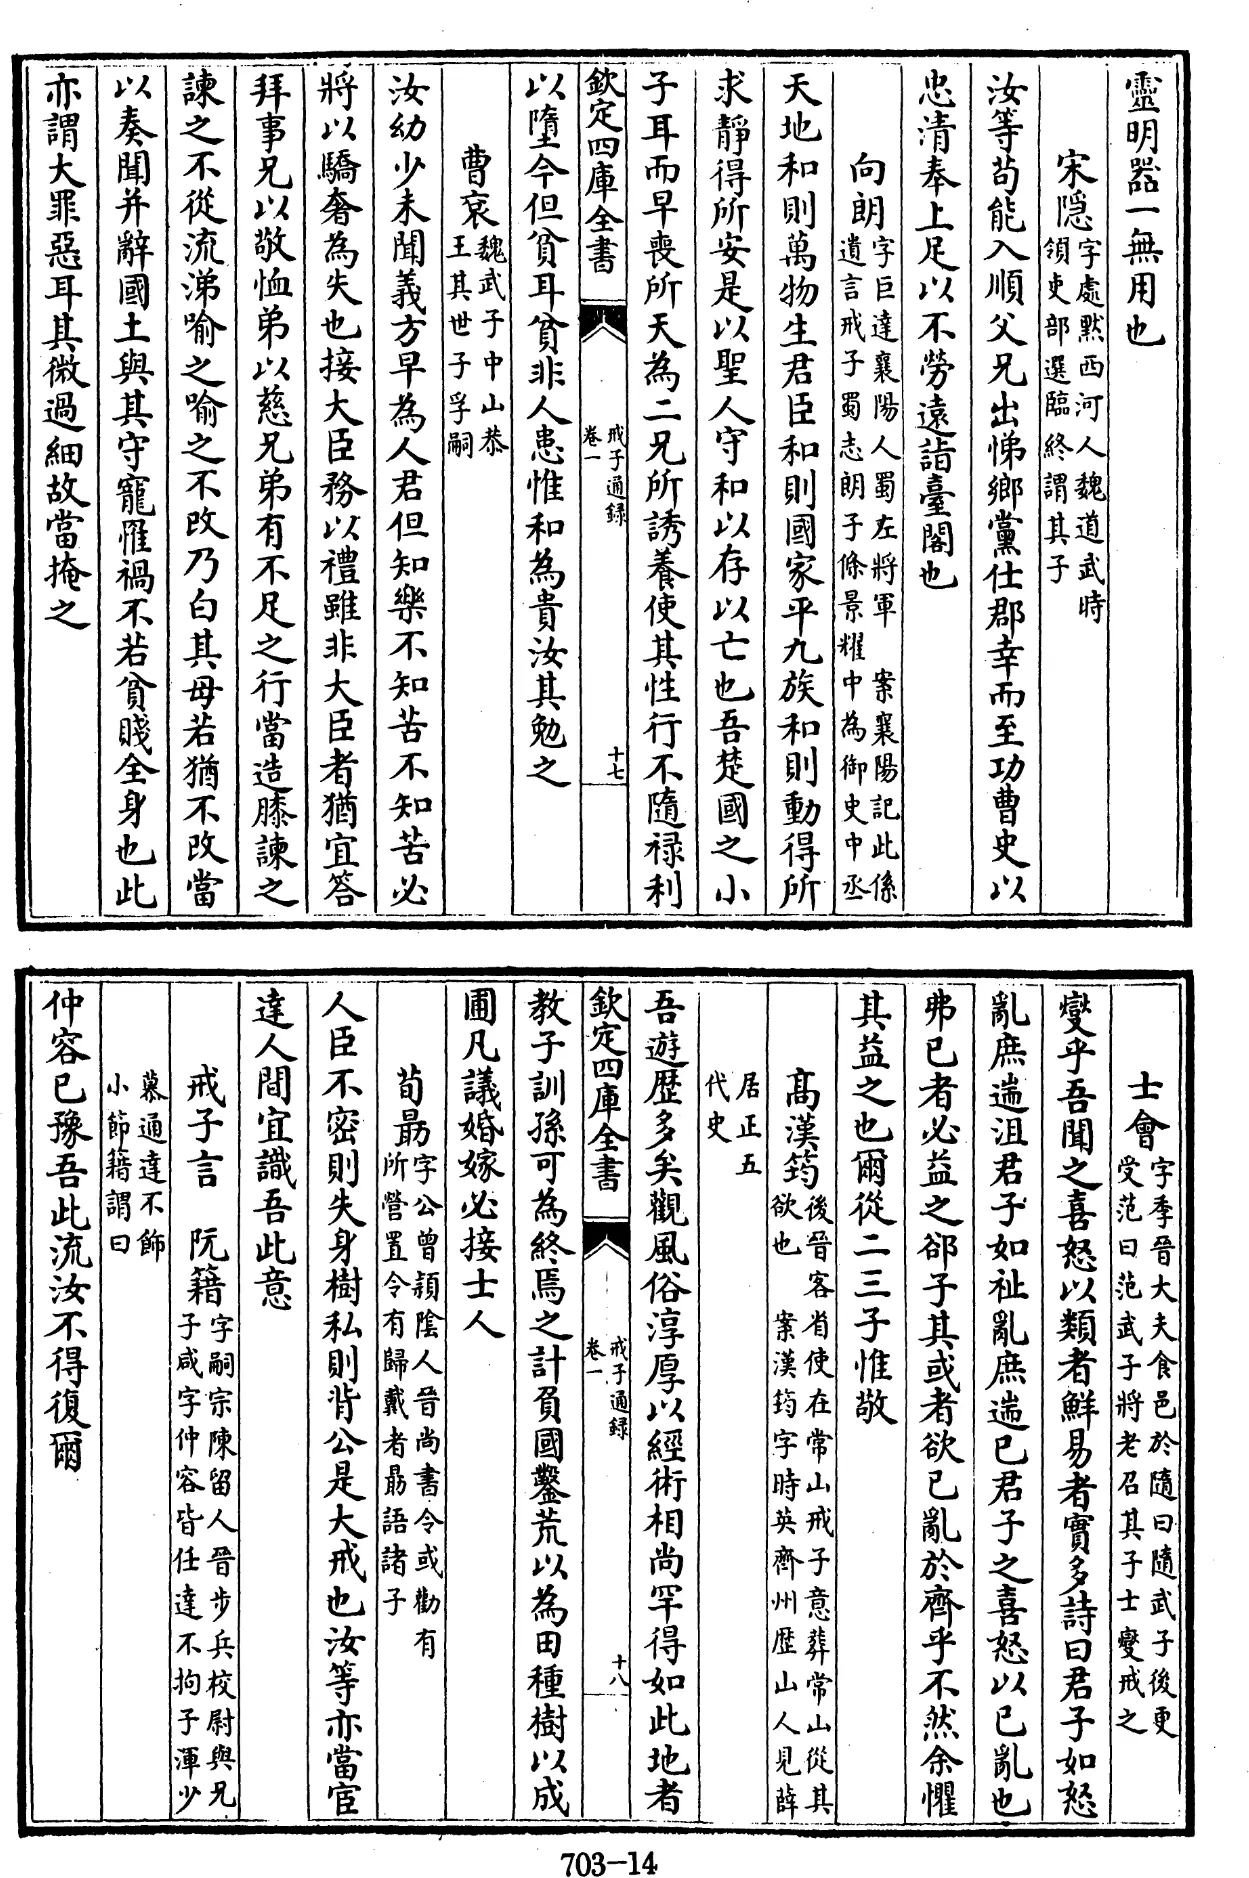 靈明器一無用也
宋隱字處黙西河人魏道武時
領吏部選臨終謂其子
汝等苟能入順父兄出悌鄉黨仕郡幸而至功曹史以
忠清奉上足以不勞遠詣臺閣也
向朗字巨達襄陽人蜀左將軍　案襄陽記此係
遺言戒子蜀志朗子條景耀中為御史中丞
天地和則萬物生君臣和則國家平九族和則動得所
求靜得所安是以聖人守和以存以亡也吾楚國之小
子耳而早喪所天為二兄所誘養使其性行不隨禄利
欽定四庫全書
戒子通録
卷一
十七
以墮今但貧耳貧非人患惟和為貴汝其勉之
曹衮魏武子中山恭
王其世子孚嗣
汝幼少未聞義方早為人君但知樂不知苦不知苦必
將以驕奢為失也接大臣務以禮雖非大臣者猶宜答
拜事兄以敬恤弟以慈兄弟有不足之行當造膝諫之
諫之不從流涕喻之喻之不改乃白其母若猶不改當
以奏聞并辭國土與其守寵罹禍不若貧賤全身也此
亦謂大罪惡耳其微過細故當掩之
士會字季晉大夫食邑於隨曰隨武子後更
受范曰范武子將老召其子士燮戒之
燮乎吾聞之喜怒以類者鮮易者實多詩曰君子如怒
亂庶遄沮君子如祉亂庶遄已君子之喜怒以已亂也
弗已者必益之郤子其或者欲已亂於齊乎不然余懼
其益之也爾從二三子惟敬
髙漢筠後晉客省使在常山戒子意葬常山從其
欲也　案漢筠字時英齊州歴山人見薛
居正五
代史
吾遊歴多矣觀風俗淳厚以經術相尚罕得如此地者
欽定四庫全書
戒子通録
卷一
十八
教子訓孫可為終焉之計負國鑿荒以為田種樹以成
圃凡議婚嫁必接士人
荀勗字公曾潁陰人晉尚書令或勸有
所營置令有歸戴者勗語諸子
人臣不密則失身樹私則背公是大戒也汝等亦當宦
達人間宜識吾此意
戒子言　阮籍字嗣宗陳留人晉步兵校尉與兄
子咸字仲容皆任達不拘子渾少
慕通達不飾
小節籍謂曰
仲容已豫吾此流汝不得復爾
703-14